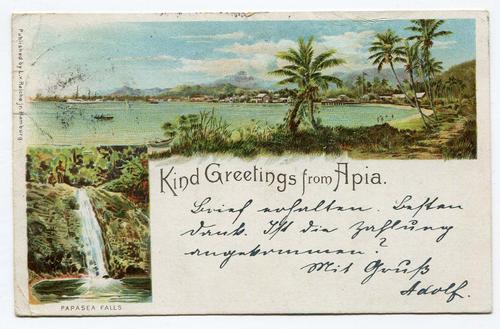 Published by L. v. Reiche jr. Hamburg
Kind Greetings from Apia.
Brief erhalten. Besten
Dank. Ist die Zahlung
angekommen?
Mit Gruß
Adolf.
PAPASEA FALLS